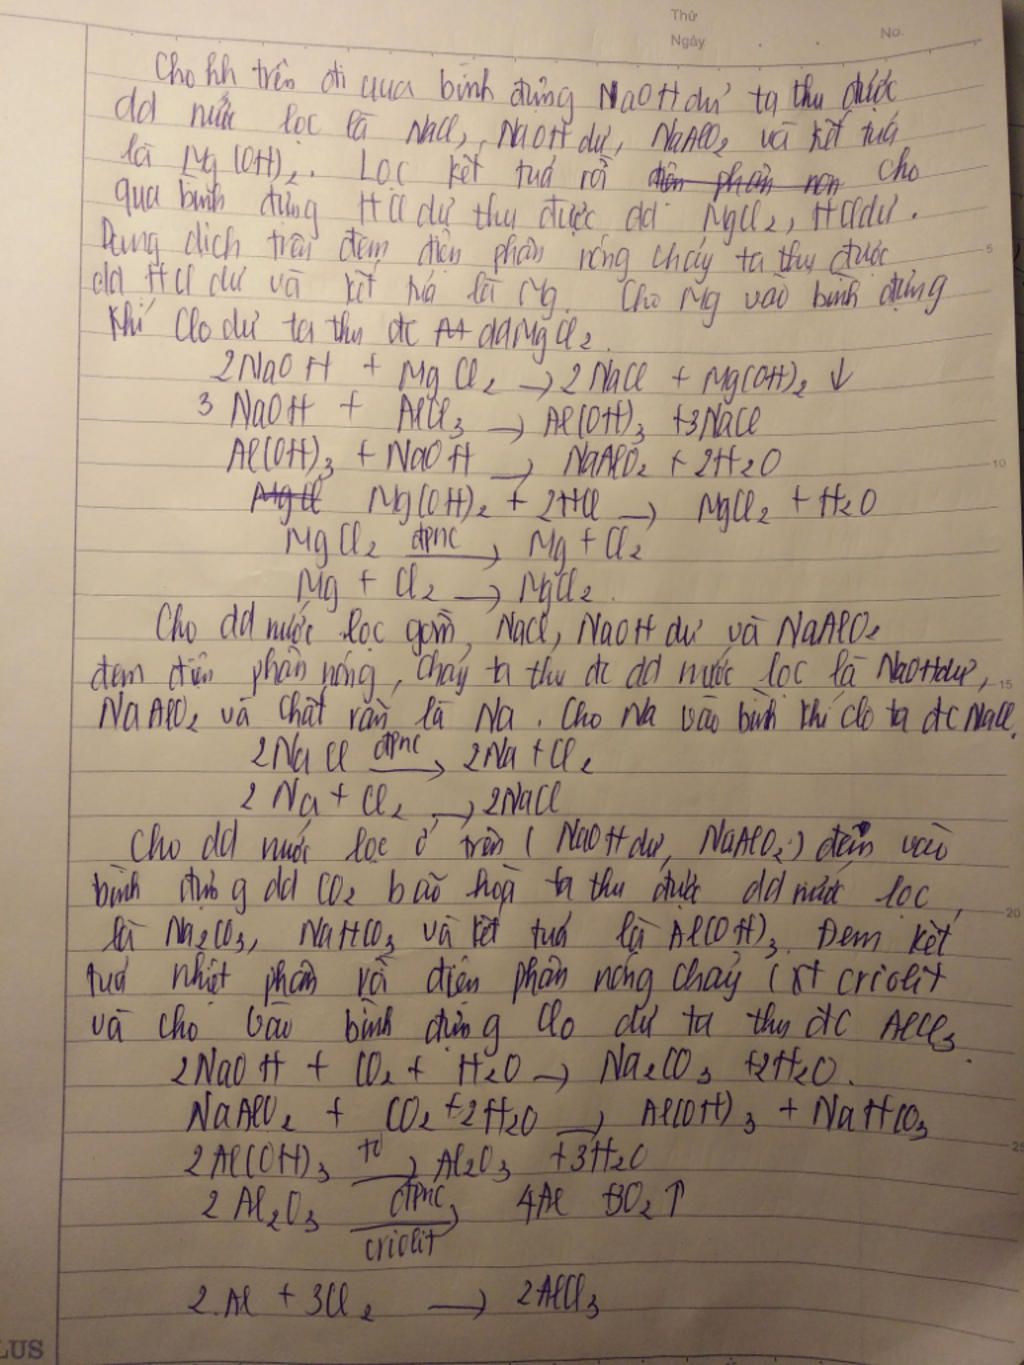 Thứ
Ngày
No.
Cho hh trên đi qua bình đựng NaOH dư ta thu được
dd nước lọc là NaCl, NaOH dư, NaAlO₂ và kết tuả
là Mg(OH)₂. Lọc kết tuả rồi điện phân nón cho
qua bình đựng HCl dư thu được dd MgCl₂, HCl dư.
Dung dịch trên đem điện phân nóng chảy ta thu được
dd HCl dư và kết tuả là Mg. Cho Mg vào bình đựng
khí Clo dư ta thu đc Al ddMgCl₂.
2NaOH + MgCl₂ → 2NaCl + Mg(OH)₂ ↓
3 NaOH + AlCl₃ → Al(OH)₃ +3NaCl
Al(OH)₃ + NaOH → NaAlO₂ + 2H₂O
MgCl Mg(OH)₂ + 2HCl → MgCl₂ + H₂O
MgCl₂ đpnc → Mg + Cl₂
Mg + Cl₂ → MgCl₂.
Cho dd nước lọc gồm NaCl, NaOH dư và NaAlO₂
đem điện phân nóng, chảy ta thu đc dd nước lọc là NaOH dư,
NaAlO₂ và chất rắn là Na. Cho Na vào bình khí clo ta đc NaCl.
2NaCl đpnc → 2Na + Cl₂
2 Na + Cl₂ → 2NaCl
Cho dd nước lọc ở trên (NaOH dư, NaAlO₂) đem vào
bình đựng dd CO₂ bão hoà ta thu được dd nước lọc
là Na₂CO₃, NaHCO₃ và kết tuả là Al(OH)₃. Đem kết
tuả nhiệt phân và điện phân nóng chảy (xt criolit
và cho vào bình đựng Clo dư ta thu đc AlCl₃.
2NaOH + CO₂ + H₂O → Na₂CO₃ +2H₂O.
NaAlO₂ + CO₂ +2H₂O → Al(OH)₃ + NaHCO₃
2Al(OH)₃ t° → Al₂O₃ +3H₂O
2Al₂O₃ đpnc → criolit 4Al 3O₂ ↑
2.Al + 3Cl₂ → 2AlCl₃
5
10
15
20
25
LUS